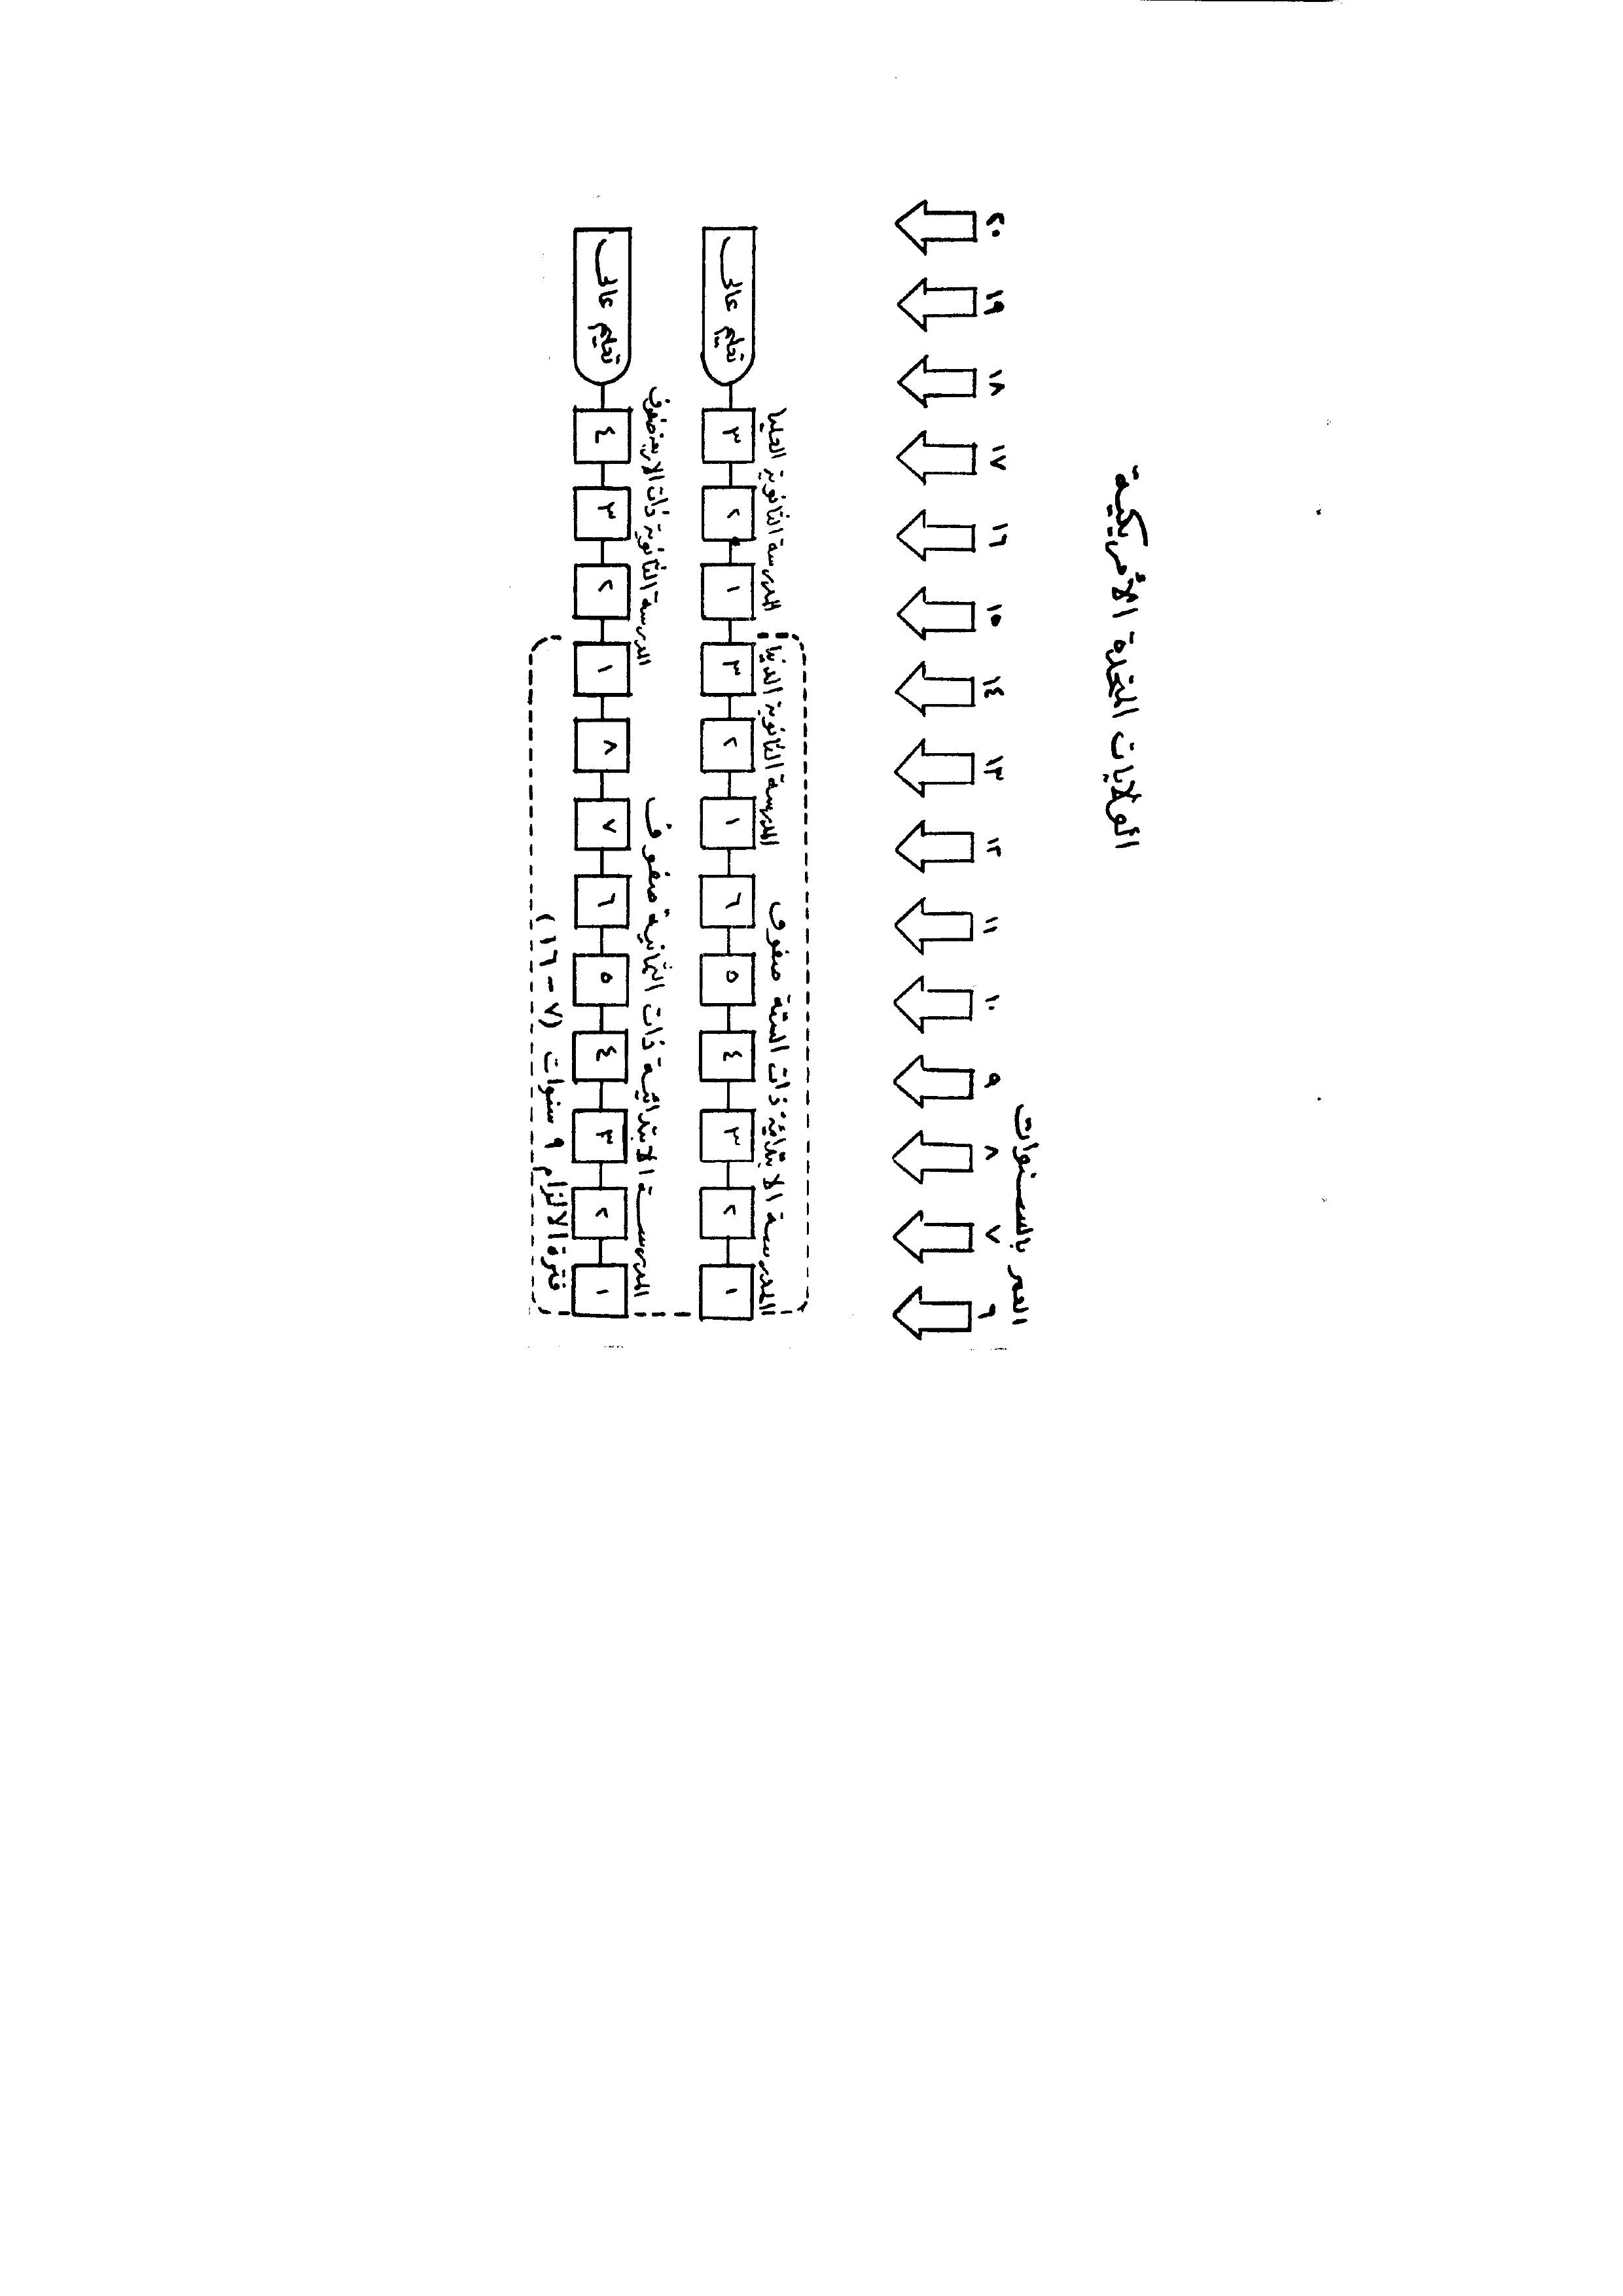 الولايات المتحدة الأمريكية
العمر بالسنوات
٦ ٧ ٨ ٩ ١٠ ١١ ١٢ ١٣ ١٤ ١٥ ١٦ ١٧ ١٨ ١٩ ٢٠
المدرسة الابتدائية ذات الستة صفوف المدرسة الثانوية الدنيا المدرسة الثانوية العليا
١ ٢ ٣ ٤ ٥ ٦ ١ ٢ ٣ ١ ٢ ٣ تعليم عالى
المدرسة الابتدائية ذات الثمانية صفوف المدرسة الثانوية ذات الاربعة صفوف
١ ٢ ٣ ٤ ٥ ٦ ٧ ٨ ١ ٢ ٣ ٤ تعليم عالى
فترة الالزام ٩ سنوات (٧ - ١٦)